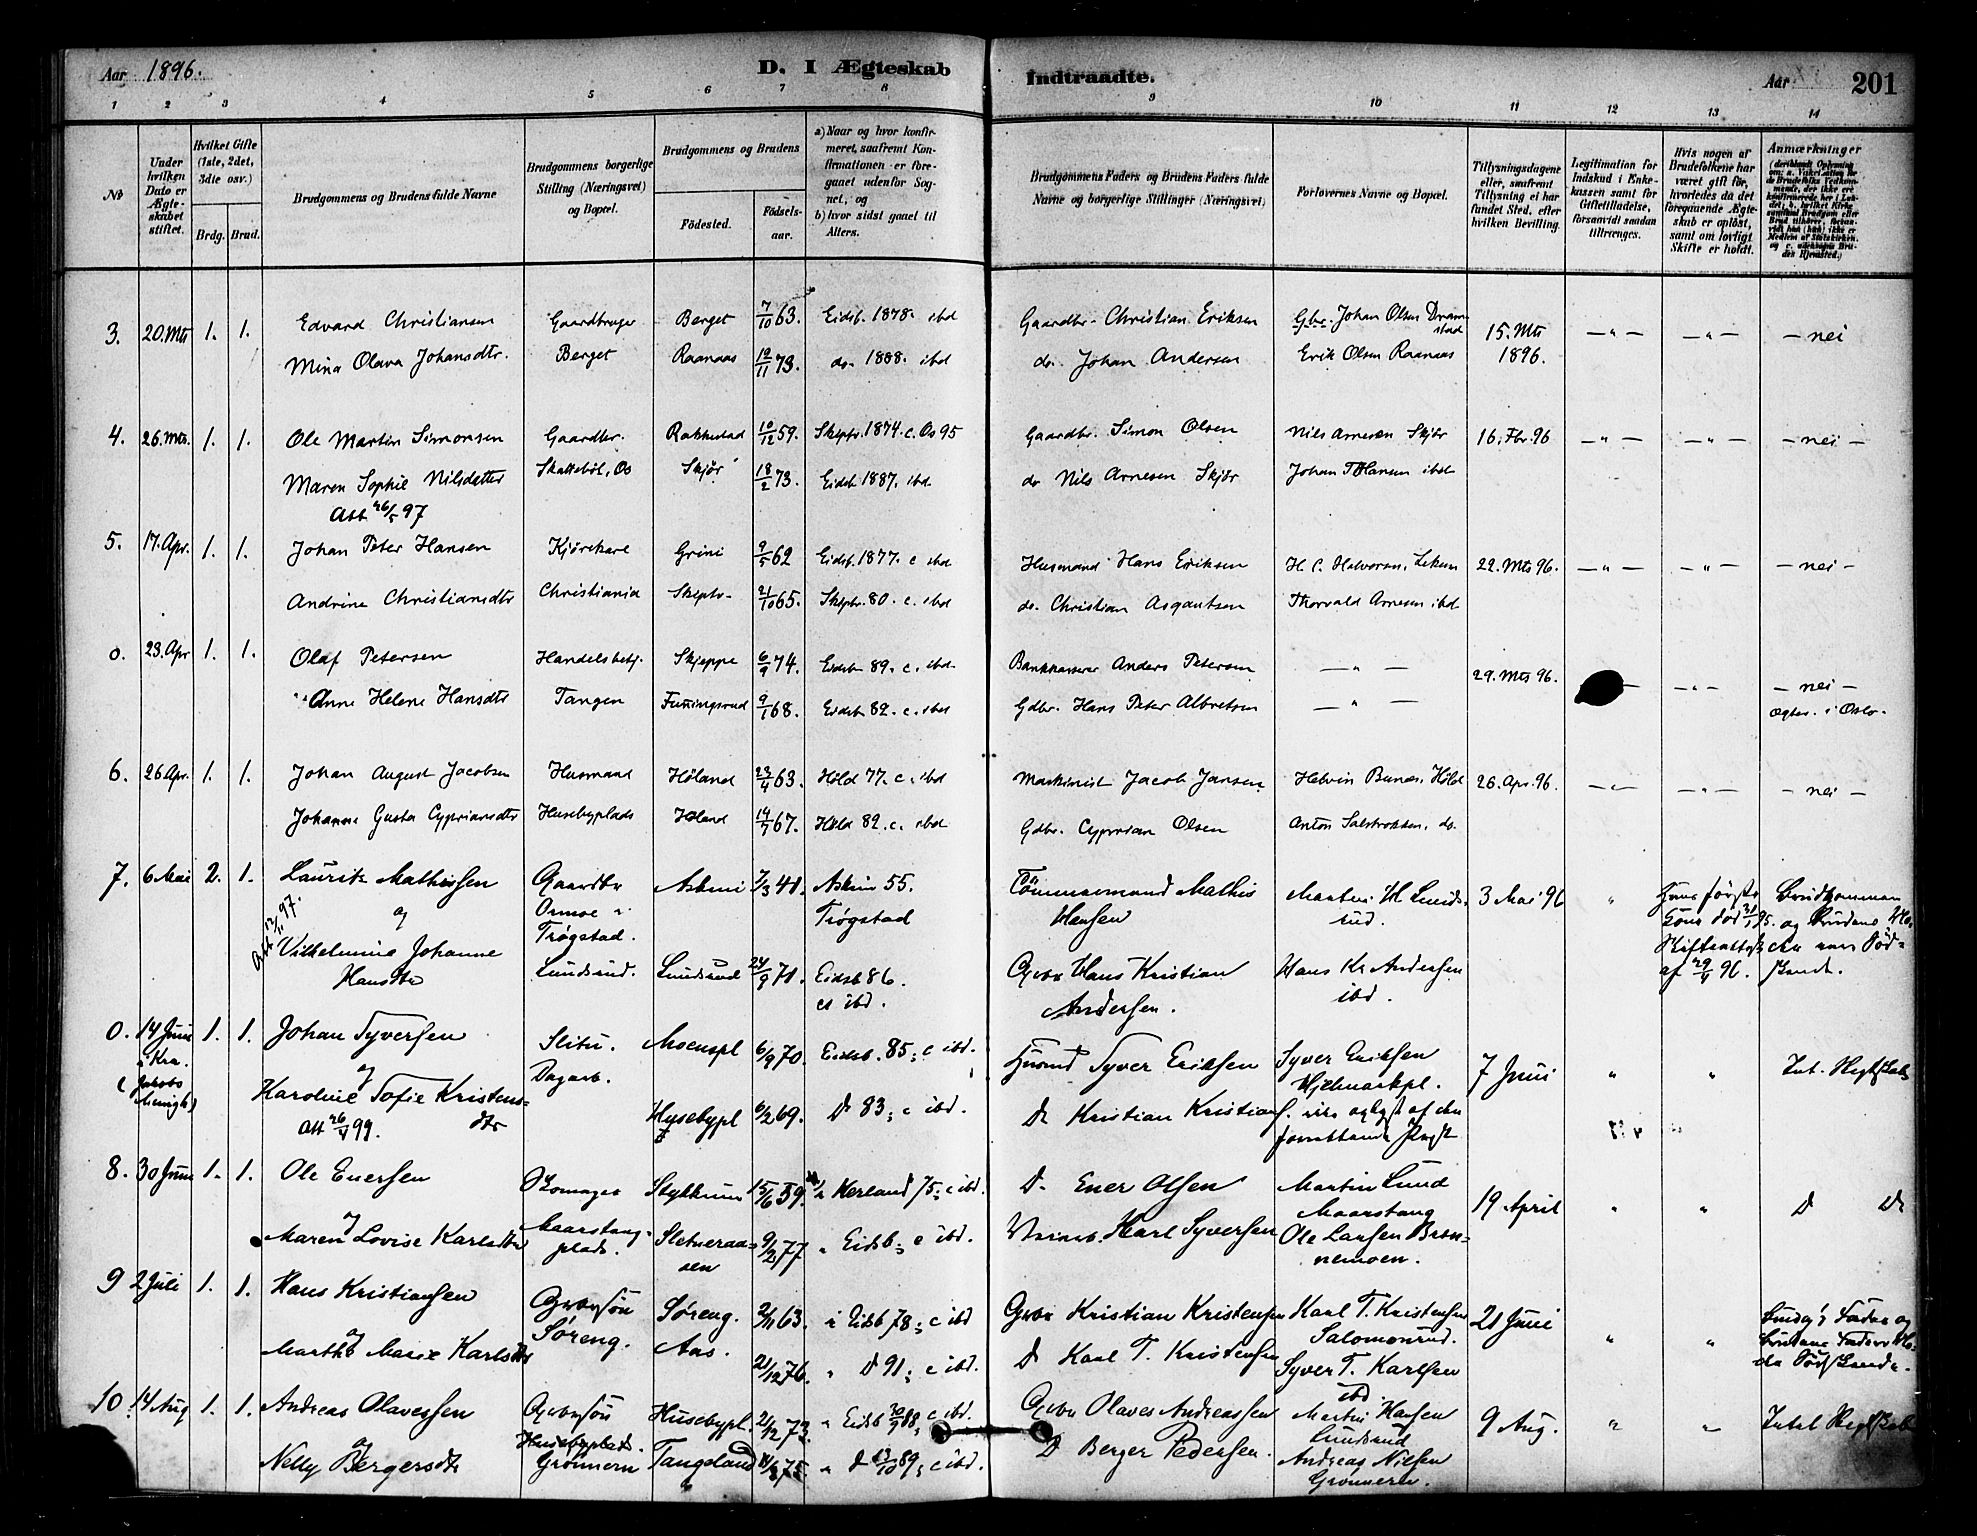 Aar 1896. D. I Ægteskab Indtraadte. Aar 201
1 2 3 4 5 6 7 8 9 10 11 12 13 14
No
Under hvilken Dato er Ægteskabet stiftet.
Hvilket Gifte (1ste, 2det, 3die osv.)
Brdg. Brud.
Brudgommens og Brudens fulde Navne
Brudgommens borgerlige Stilling (Næringsvei) og Bopæl.
Brudgommens og Brudens
Fødested. Fødselsaar.
a) Naar og hvor konfirmeret, saafremt Konfirmationen er foregaaet udenfor Sognet, og
b) hvor sidst gaaet til Alters.
Brudgommens Faders og Brudens Faders fulde Navne og borgerlige Stillinger (Næringsvei)
Forlovernes Navne og Bopæl.
Tillysningsdagene eller, saafremt Tillysning ei har fundet Sted, efter hvilken Bevilling.
Legitimation for Indskud i Enkekassen samt for Giftetilladelse, forsaavidt saadan tiltrænges.
Hvis nogen af Brudefolkene har været gift før, hvorledes da det foregaaende Ægteskab er opløst, samt om lovligt Skifte er holdt.
Anmærkninger
3. 20. Mts 1. 1. Edvard Christiansen Gaardbruger Berget 7/10 63. Eidsb. 1878. ibd Gaardbr. Christian Eriksen Gbr. Johan Olsen Dramstad 15. Mts 1896. — „ — — „ — — nei
Mina Olava Johansdtr. Berget Raanaas 12/11 73. do. 1888. ibd do. Johan Andersen Erik Olsen Raanaas
4. 26. Mts. 1. 1. Ole Martin Simonsen Gaardbr. Rakkestad 10/12 59. Skiptv. 1874. c. Os 95 Gaardbr. Simon Olsen Nils Arnesen Skjør 16. Fbr. 96 — „ — — „ — — nei —
Maren Sophie Nilsdatter Skattebøl, Os Skjør 18/2 73. Eidsb 1887. ibd do Nils Arnesen Skjør Johan Hansen ibd
Att 26/5 97
5. 17. Apr. 1. 1. Johan Peter Hansen Kjørekarl Grini 9/5 62 Eidsb. 1877. c ibd Husmand Hans Eriksen H. C. Halvorsn. Lekum 22. Mts 96. — „ — — „ — — nei —
Andrine Christiansdtr Christiania Skiptv. 21/10 65. Skiptv. 80. c. ibd do. Christian Asgautsen Thorvald Arnesen ibd
0. 23. Apr 1. 1. Olaf Petersen Handelsbetj. Skjeppe 6/9 74. Eidsb 89. c. ibd. Bankkasserer Anders Petersen — „ — 29. Mts 96. — — „ — — nei —
Anne Helene Hansdtr Tangen Funningsrud 9/1 68. Eidsb 82. c. ibd Gdbr. Hans Peter Albretsen — „ — Ægtev. i Oslo.
6. 26 Apr. 1. 1. Johan August Jacobsen Husmand Høland 23/4 63. Høld 77. c. ibd Maskinist Jacob Jansen Helvin Bunæs, Høld 26. Apr. 96. — „ — — „ — — nei —
Johanne Gusta Cypriansdtr Husebyplads Høland 14/7 67. Høld 82. c. ibd Gdbr. Cyprian Olsen Anton do.
7. 6 Mai 2. 1. Lauritz Mathisen Gaardbr Askim 7/3 41. Askim 55. Tømmermand Mathis Hansen Martin H Lundsrud 3 Mai 96 „
og Trøgstad. Trøgstad
Att 12/11 97.
Vilhelmine Johanne Hansdtr Lundsrud. Lundsrud 24/9 71. Eidsb 86. c ibd. Gbr Hans Kristian Andersen. Hans Kr Andersen ibd.
Skifteattest af 29/4 96.
0. 14 Juni 1. 1. Johan Syversen Slitu. Moenspl 6/9 70. Eidsb. 85; c ibd. Husmd Syver Eriksen Syver Eriksen Hjelmarkpl. 7 Juni „ „
i Kra. (Jakobs Menigh)
og Dagarb.
Karoline Sofie Kristensdtr Husebypl 6/2 69. D 83; c ibd. D Kristian Kristians.
Att 26/4 99.
8. 30 Juni 1. 1. Ole Enersen Skomager 15/6 59. i Herland 75; c ibd. D. Ener Olsen Martin Lund Maarstang 19 April „ „ D D
og
Maren Lovise Karlsdtr Maarstangplads. Sletneraasen 9/2 77 „ Eidsb; c ibd. Karl Syversen Ole Larsen Brønnemoen.
9 2 Juli 1. 1. Hans Kristiansen Gbrsøn Søreng. 2/11 63. i Eidsb 78; c ibd Gbr Kristian Kristensen Karl T. Kristensen Salomonrud. 21 Juni „ „
og Søreng.
Marthe Marie Karlsdtr Aas. 21/12 76. „ D 91; c ibd. D Karl T. Kristensen Syver T. Karlsen ibd
10. 14 Aug 1. 1. Andreas Olavessen Gbrsøn Husebypl. 2/12 73. „ Eidsb 30/9 88; c ibd. Gbr Olaves Andreassen Martin Hansen Lundsrud 9 Aug. „ „
og Husebyplads.
Nelly Bergersdtr Grønnern Tangeland 75. „ D 13/10 89; c ibd. D Berger Pedersen. Andreas Nilsen Grønnern.